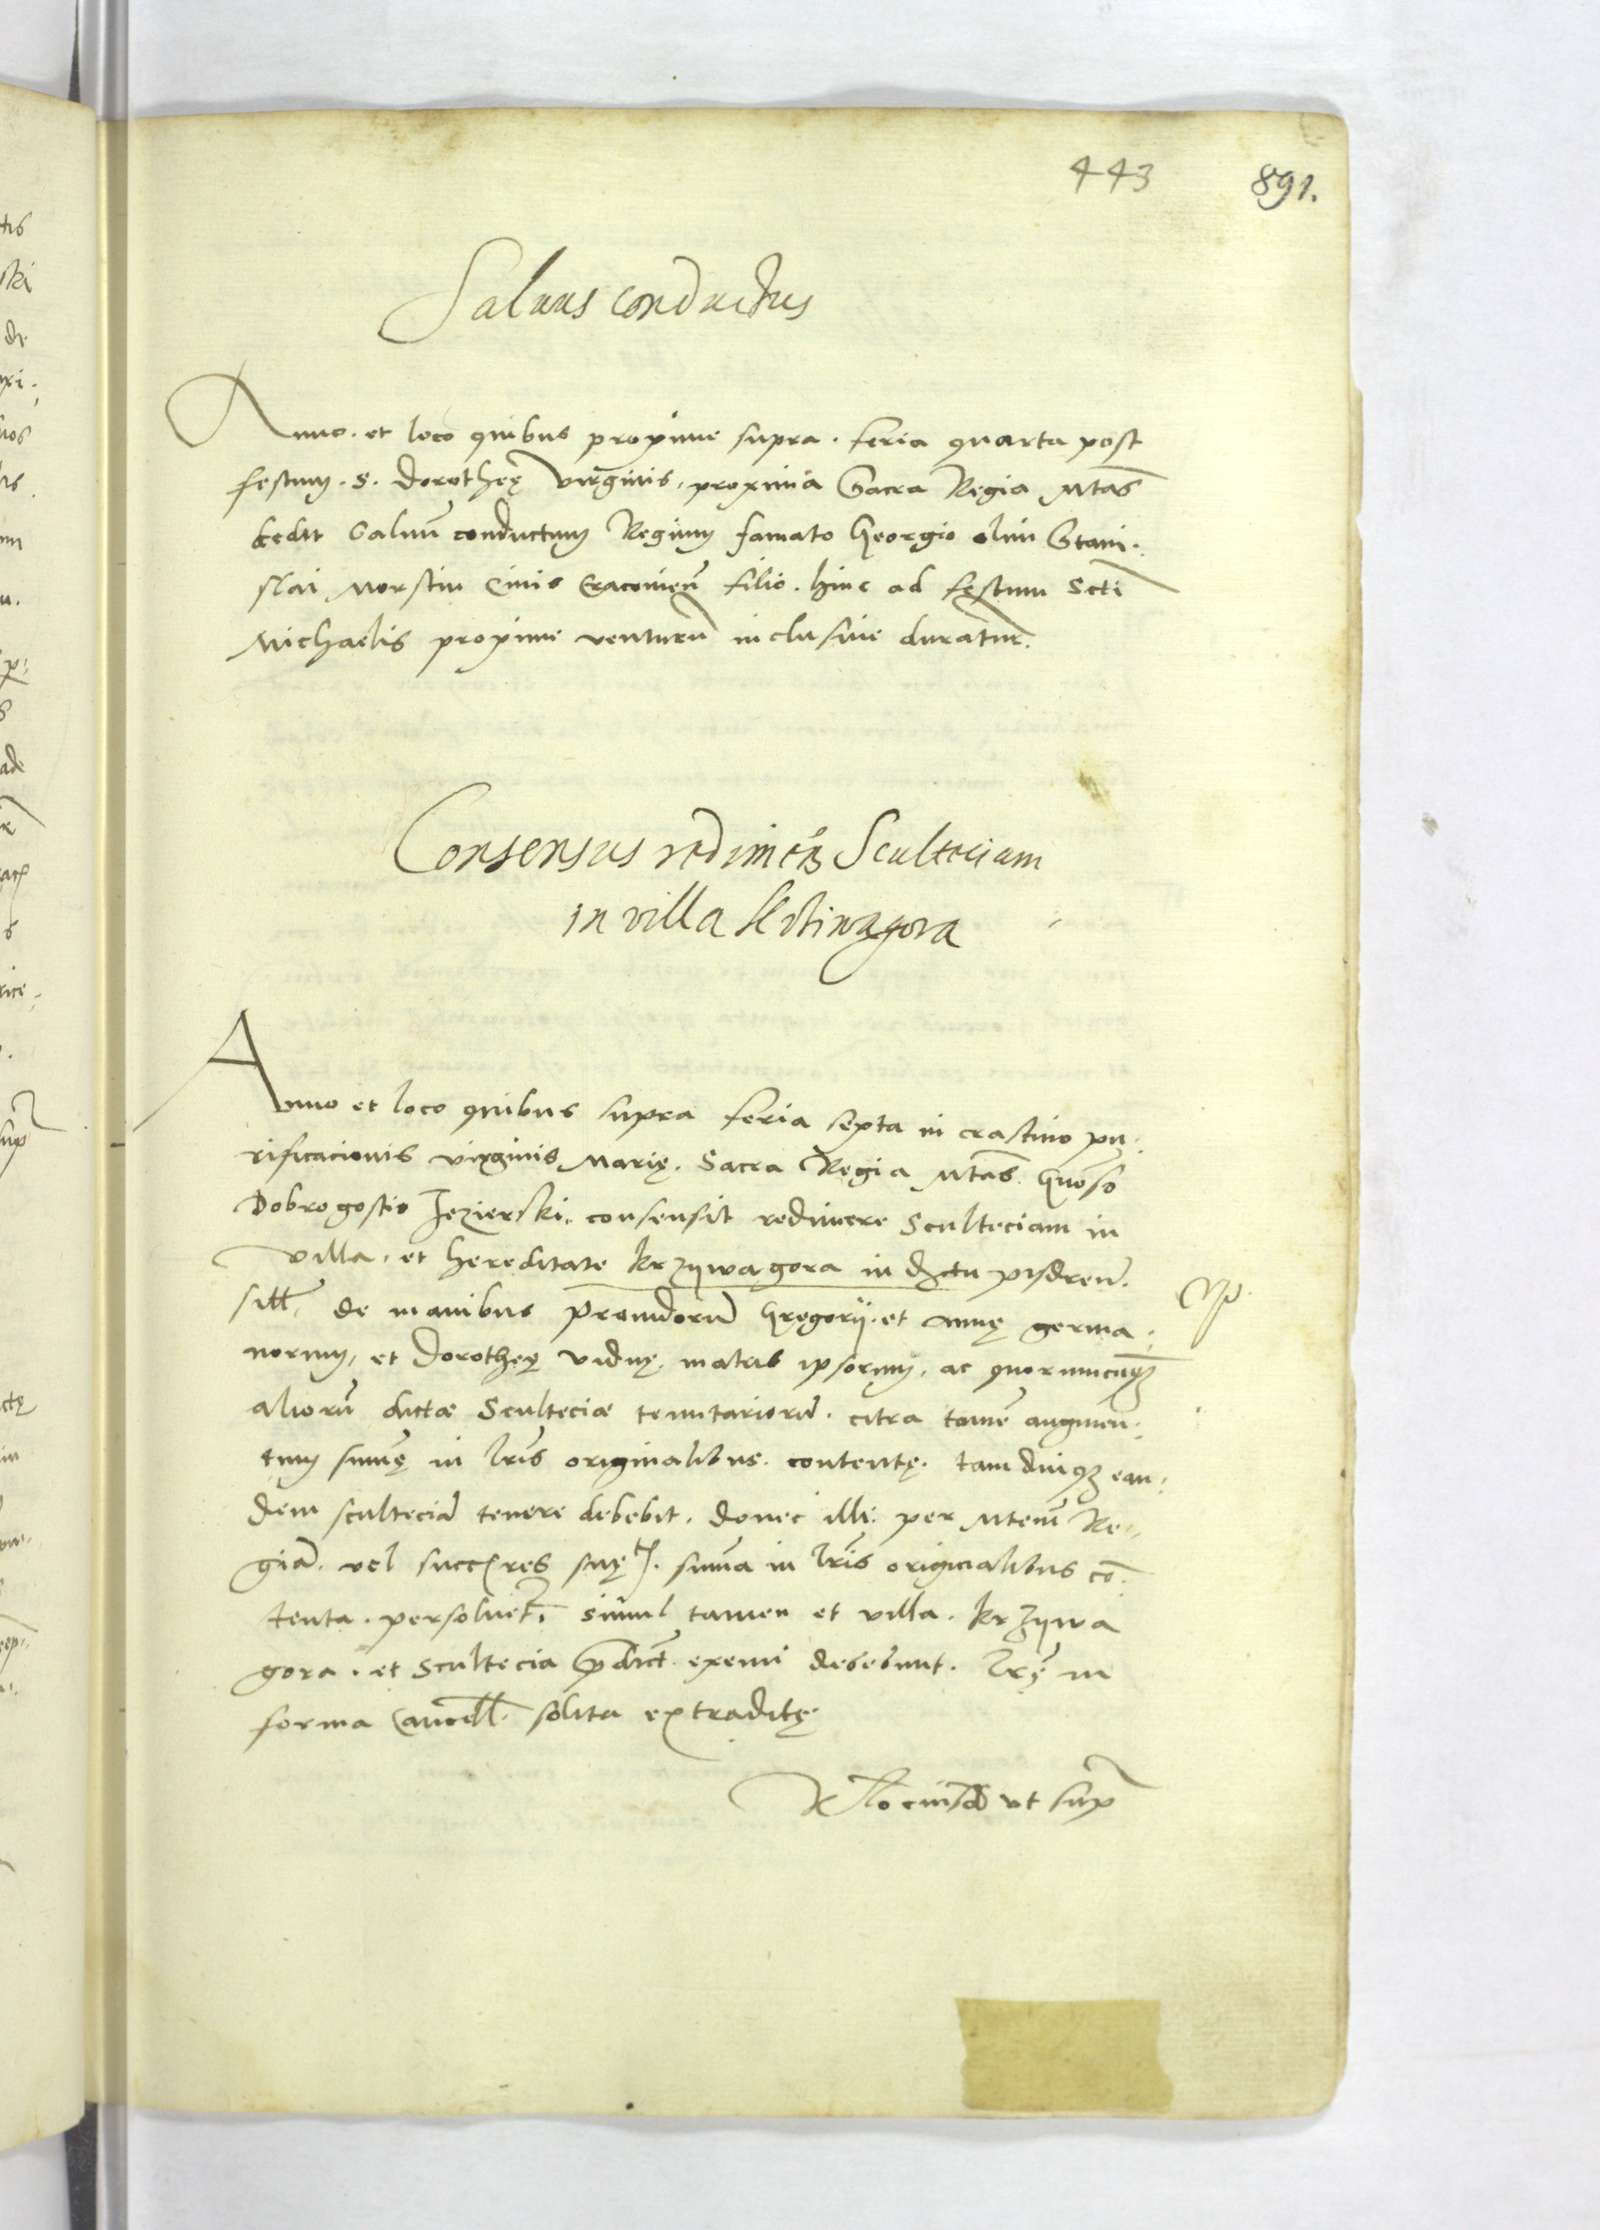 443 891.
Saluus conductus
Anno et loco quibus proxime supra. feria quarta post
festum. S. Dorotheę virginis, proxima Sacra Regia Mtas
dedit Saluũ conductum Regium famato Georgio olim Stani-
slai Morstin Ciuis Cracovieñ filio. hinc ad festum Scti
Michaelis proxime venturũ inclusiue duratur.
Consensus redimēdi Sculteciam
in villa
Anno et loco quibus supra feria sexta in crastino pu-
rificacionis virginis Marię. Sacra Regia Mtas Gnoso
Dobrogostio Jezierski. consensit redimere Scultetiam in
villa. et hereditate Krzywagora in dctu pisdreñ.
sitł. de manibus prouidorũ Gregorij. et Annę germa-
norum, et Dorotheę viduę. matris ipsorum. ac quorumcunq3
aliorũ dictæ Scultetiæ tenutariorũ. citra tamẽ augmen-
tum sumę in lris originalibus. contentę. tam diuq3 ean-
dem scultetiã tenere debebit. donec illi. per Mtem Re-
giã. vel succres suę. suma in lris originalibus cõ-
tenta. persoluet. simul tamen et villa. Krzywa
gora. et Scultecia p̃dict. eximi debebunt. Lrę in
forma Cancell. solita extraditę
Rlo eiusd ut supr